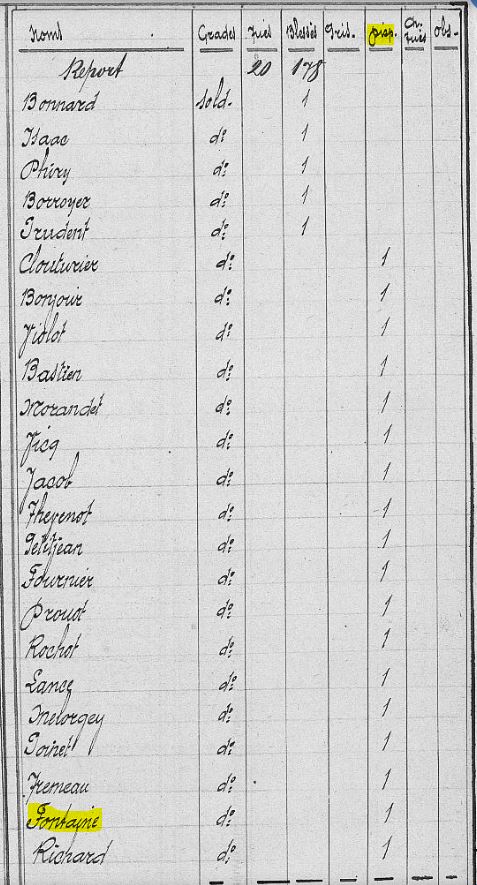 Noms Grades Tués Blessés Pris. Disp. Ch. tués Obs.
Report 20 178
Bonnard sold. 1
Isaac do 1
Phiry do 1
Borroyer do 1
Prudent do 1
Clouturier do 1
Bonjour do 1
Violot do 1
Bastien do 1
Morandet do 1
Vicq do 1
Jacob do 1
Thevenot do 1
Petitjean do 1
Fournier do 1
Prouot do 1
Rochot do 1
Lance do 1
Melorgey do 1
Poinet do 1
Fremeau do 1
Fontaine do 1
Richard do 1